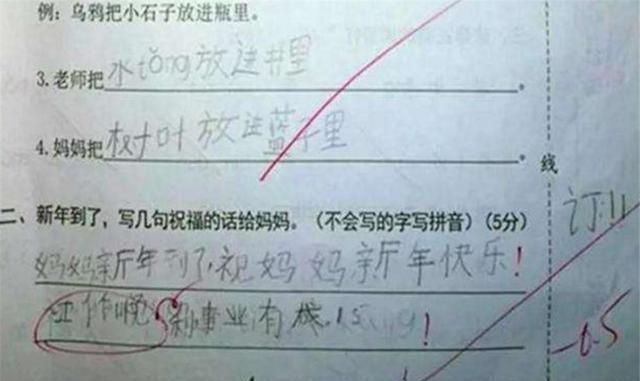 例：乌鸦把小石子放进瓶里。
3.老师把水tǒng放进井里。
4.妈妈把树叶放进蓝子里。
线
二、新年到了，写几句祝福的话给妈妈。（不会写的字写拼音）（5分）
订:11
妈妈新年到了,祝妈妈新年快乐！
工作悦 事业有 ！
-0.5